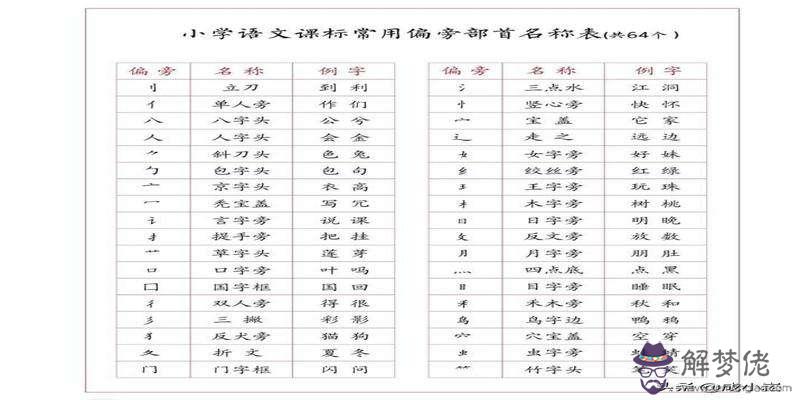 小学语文课标常用偏旁部首名称表(共64个)
偏旁 名称 例字 偏旁 名称 例字
刂 立刀 到 利 氵 三点水 江 洞
亻 单人旁 作 们 忄 竖心旁 快 怀
八 八字头 公 兮 宀 宝盖 它 家
人 人字头 会 金 辶 走之 远 边
⺈ 斜刀头 色 兔 女 女字旁 好 妹
勹 包字头 包 句 纟 绞丝旁 红 绿
亠 京字头 衣 高 王 王字旁 玩 珠
冖 秃宝盖 写 冗 木 木字旁 树 桃
讠 言字旁 说 课 日 日字旁 明 晚
扌 提手旁 把 挂 攵 反文旁 放 数
艹 草字头 莲 芽 月 月字旁 朋 肚
口 口字旁 叶 吗 灬 四点底 点 黑
囗 国字框 国 回 目 目字旁 睡 眠
彳 双人旁 得 很 禾 禾木旁 秋 和
彡 三撇 彩 影 鸟 鸟字边 鸭 鸦
犭 反犬旁 猫 狗 穴 穴宝盖 空 穿
夂 折文 夏 冬 虫 虫字旁 蜻
门 门字框 闪 问 ⺮ 竹字头 笑
解梦佬
头条@